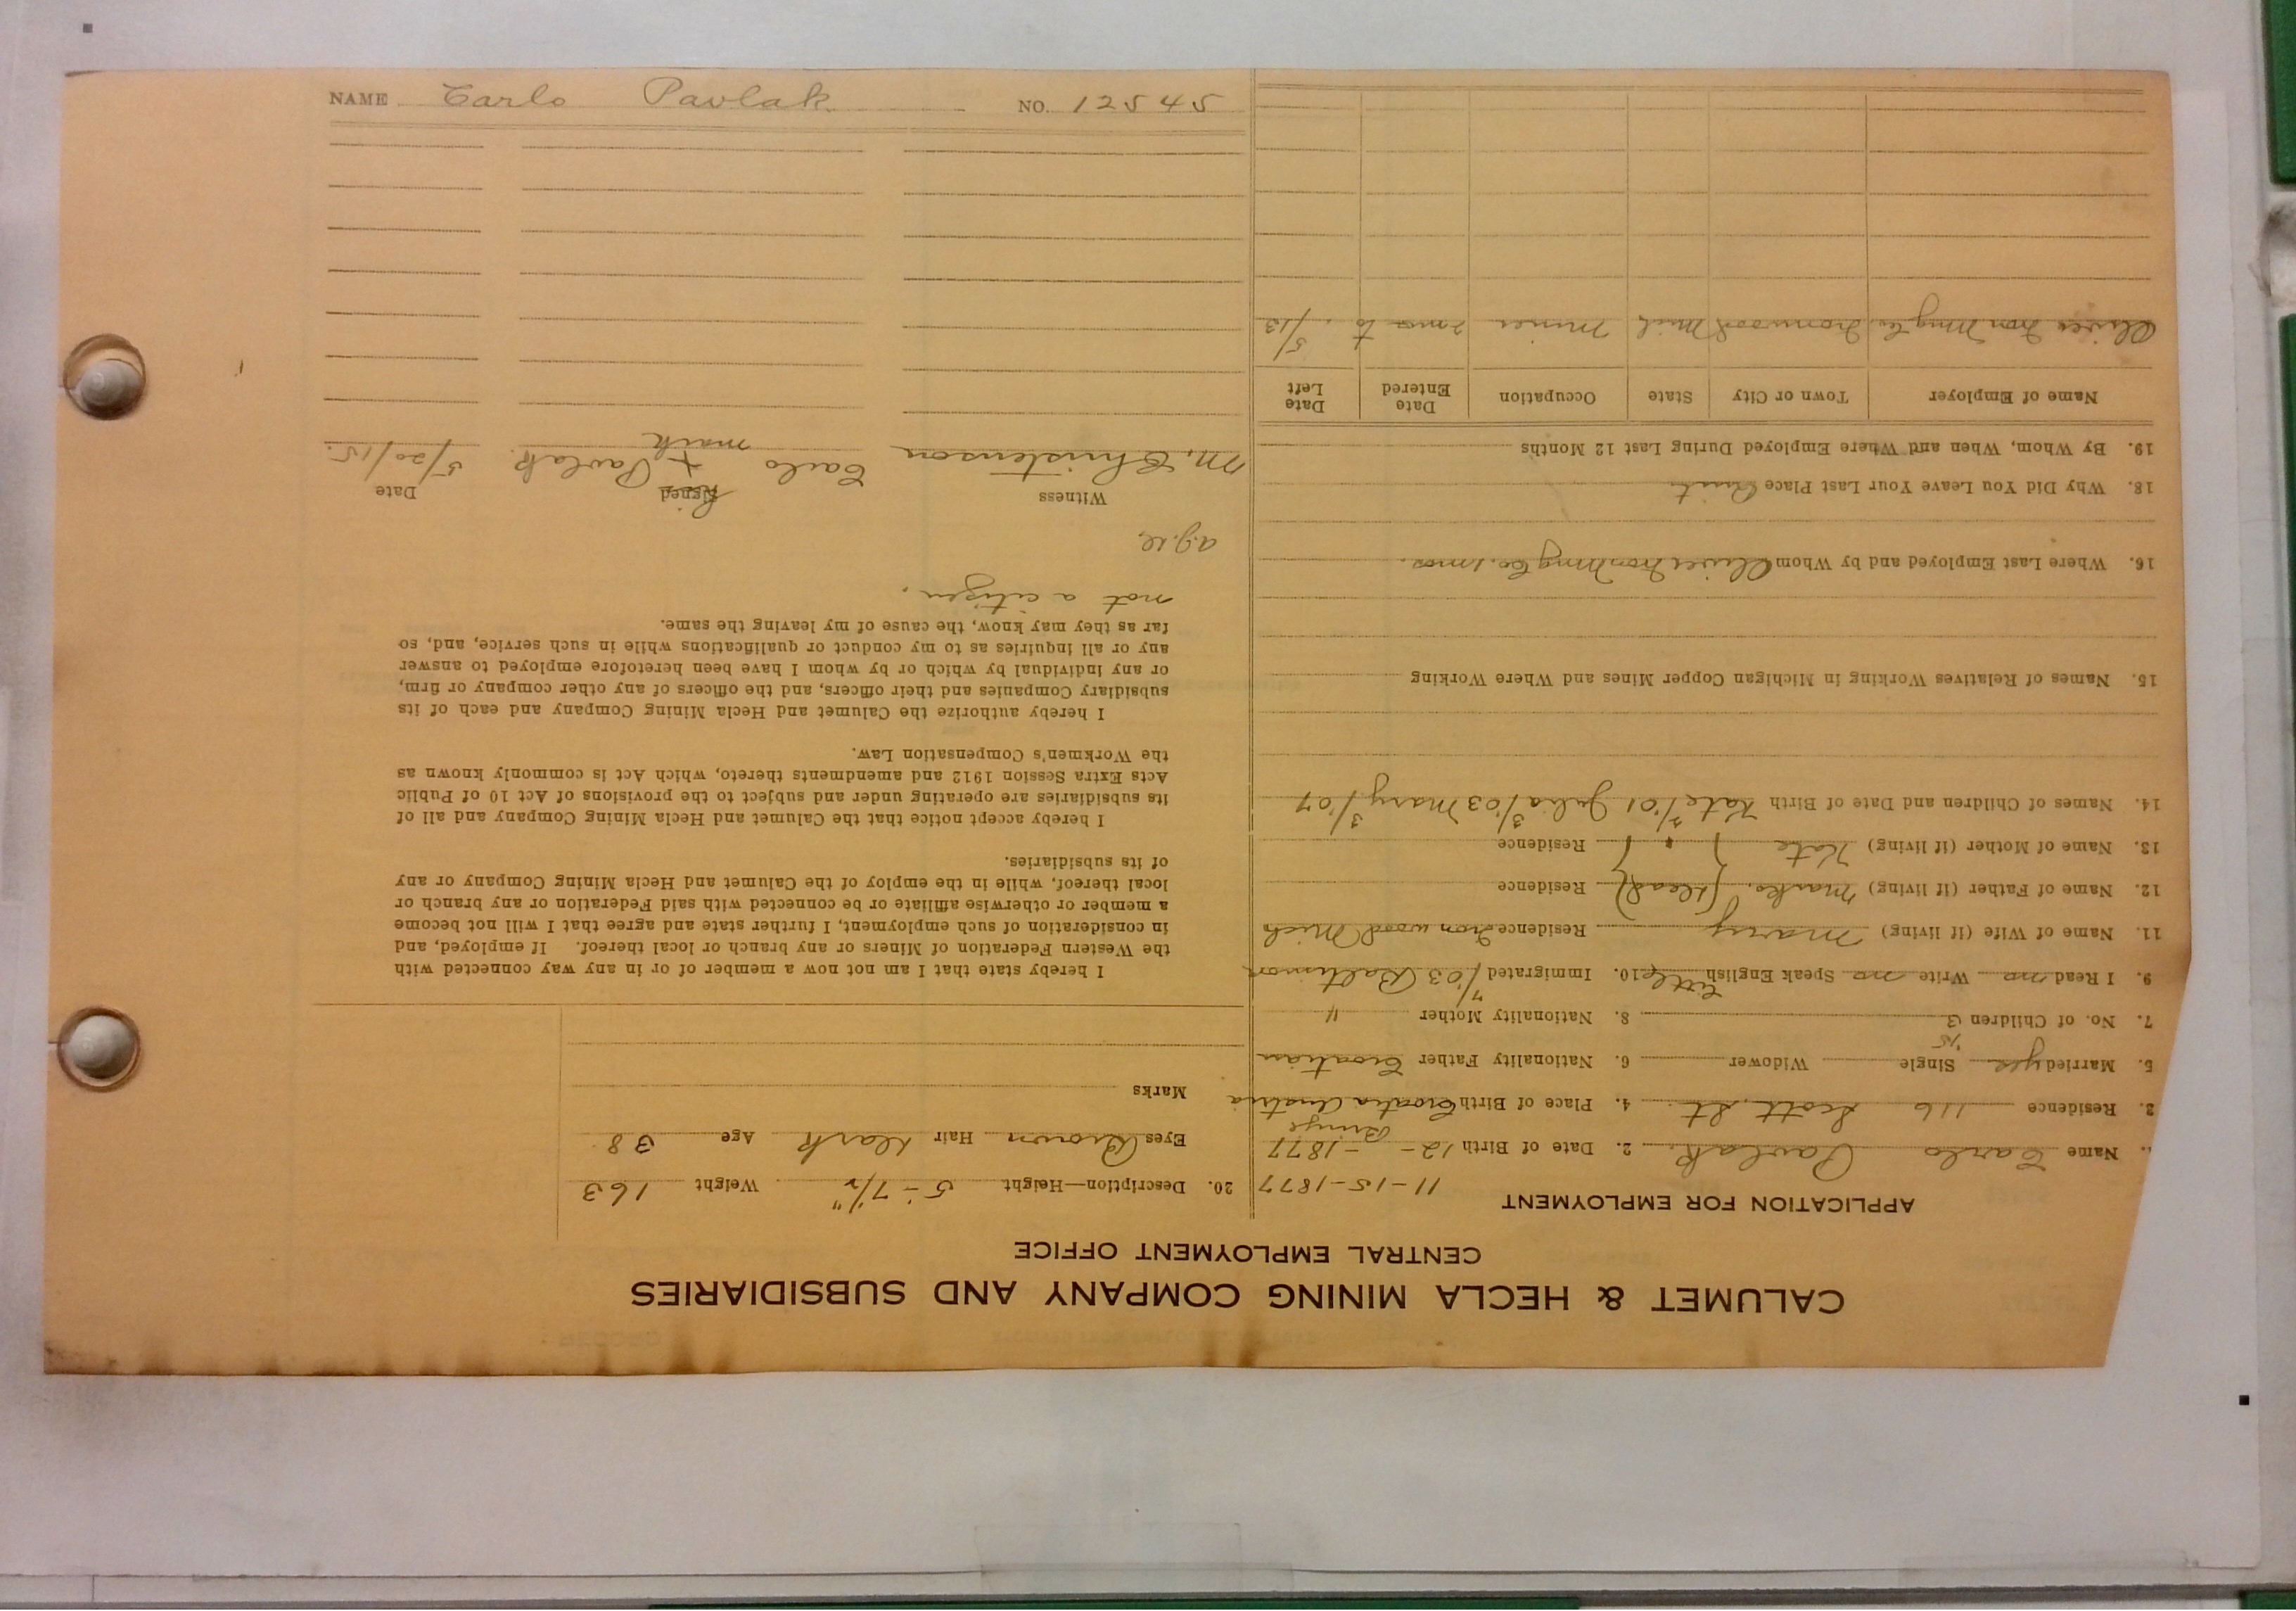 CALUMET & HECLA MINING COMPANY AND SUBSIDIARIES
CENTRAL EMPLOYMENT OFFICE
APPLICATION FOR EMPLOYMENT
11-15-1877
1. Name Carlo Pavlak. 2. Date of Birth 12- -1877
3. Residence 116 Scott St. 4. Place of Birth Croatia Austria
5. Married yes Single Widower 6. Nationality Father Croatian
'15
7. No. of Children 3 8. Nationality Mother "
9. I Read no Write no Speak English little 10. Immigrated 7/'03 Baltimore
11. Name of Wife (if living) Mary Residence Ironwood Mich
12. Name of Father (if living) Marko. (dead) Residence
13. Name of Mother (if living) Kate Residence
14. Names of Children and Date of Birth Kate /'01 Julia 3/'03 Mary 3/'07
15. Names of Relatives Working in Michigan Copper Mines and Where Working
16. Where Last Employed and by Whom Oliver Iron Mng Co. 2 mos.
18. Why Did You Leave Your Last Place Quit
19. By Whom, When and Where Employed During Last 12 Months
Name of Employer Town or City State Occupation Date Entered Date Left
Oliver Iron Mng Co. Ironwood Mich Miner 2 mos to 5/13
20. Description—Height 5'-7 1/2" Weight 163
Eyes Brown Hair Dark Age 38
Marks
I hereby state that I am not now a member of or in any way connected with
the Western Federation of Miners or any branch or local thereof. If employed, and
in consideration of such employment, I further state and agree that I will not become
a member or otherwise affiliate or be connected with said Federation or any branch or
local thereof, while in the employ of the Calumet and Hecla Mining Company or any
of its subsidiaries.
I hereby accept notice that the Calumet and Hecla Mining Company and all of
its subsidiaries are operating under and subject to the provisions of Act 10 of Public
Acts Extra Session 1912 and amendments thereto, which Act is commonly known as
the Workmen's Compensation Law.
I hereby authorize the Calumet and Hecla Mining Company and each of its
subsidiary Companies and their officers, and the officers of any other company or firm,
or any individual by which or by whom I have been heretofore employed to answer
any or all inquiries as to my conduct or qualifications while in such service, and, so
far as they may know, the cause of my leaving the same.
not a citizen.
Witness Signed Date
his
M. Christenson Carlo + Pavlak. 5/20/15.
mark
NAME Carlo Pavlak NO. 12545